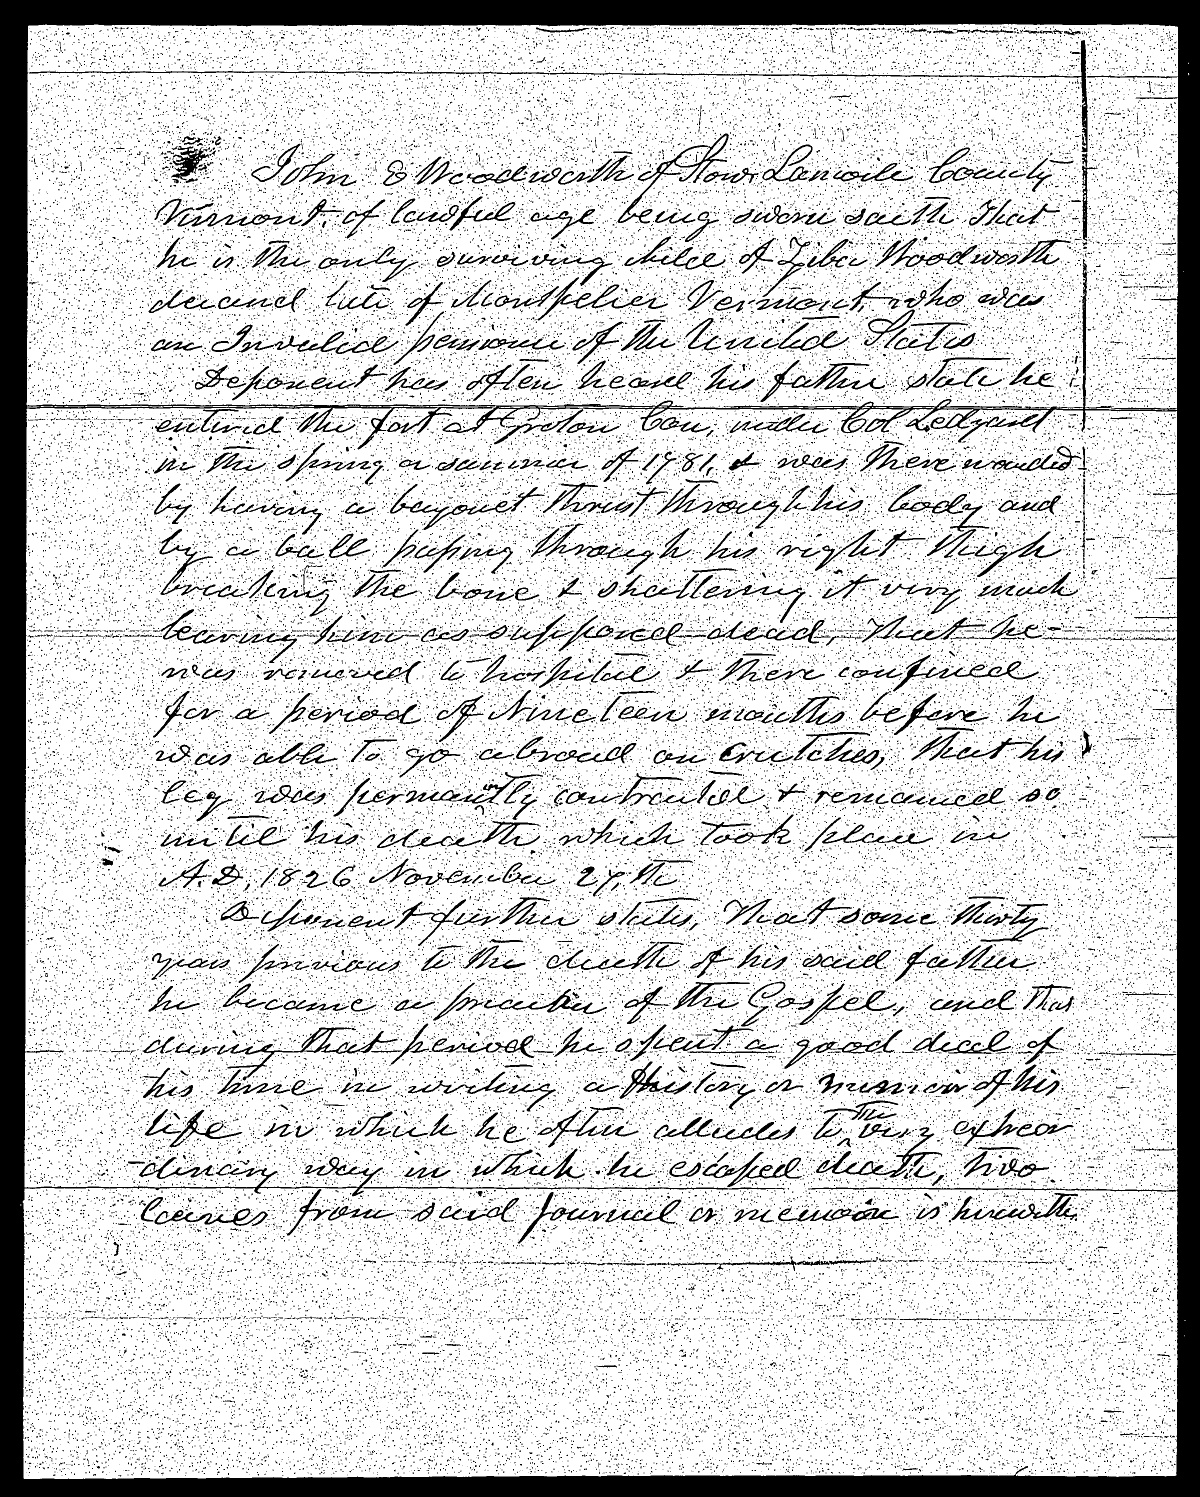 John E Woodworth of Stow, Lamoile County
Vermont, of lawful age being sworn saith That
he is the only surviving child of Ziba Woodworth
deceased late of Montpelier Vermont, who was
an Invalid pensioner of the United States
Deponent has often heard his father state he
entered the fort at Groton Con, under Col Ledyard
in the spring or summer of 1781, & was there wounded
by having a bayonet thrust through his body and
by a ball passing through his right thigh
breaking the bone & shattering it very much
leaving him as supposed dead, That he
was removed to hospital & there confined
for a period of Nineteen months before he
was able to go abroad on crutches, that his
leg was permanently contracted & remained so
until his death, which took place in
A.D. 1826 November 27,th
Deponent further states, That some thirty
years previous to the death of his said father
he became a preacher of the Gospel, and that
during that period he spent a good deal of
his time in writing a history or memoir of his
life in which he often alludes to the very extraor
dinary way in which he escaped death, two
leaves from said Journal or memoir is herewith